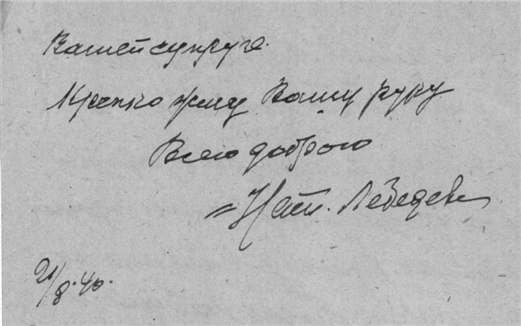 Вашей супруге.
Крепко жму Вашу руку
Всего доброго
Нат. Лебедев
21/8.40.